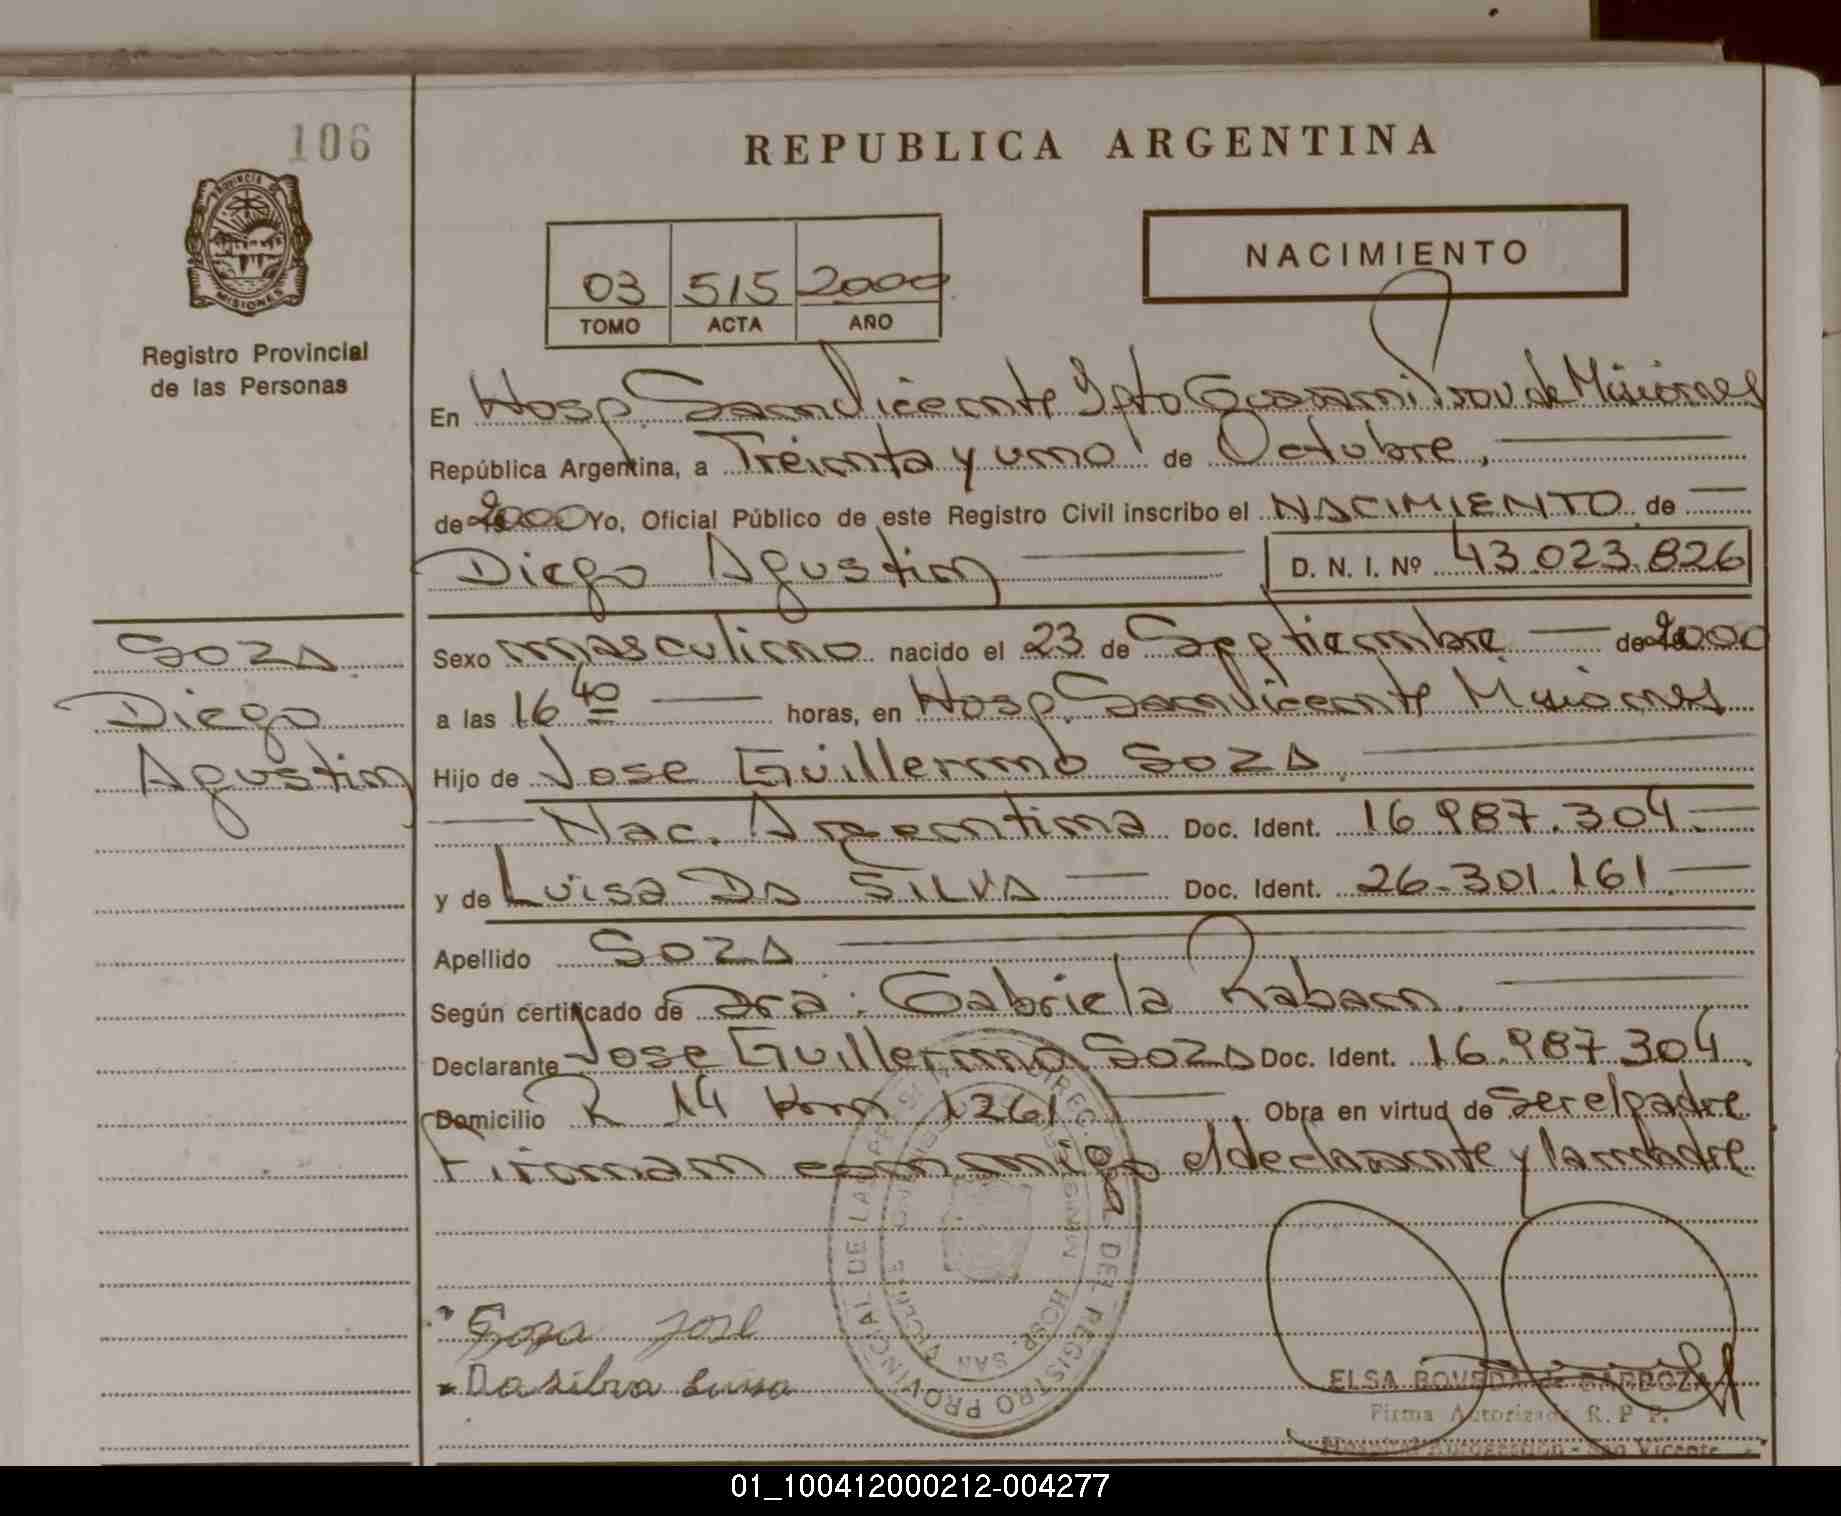 106
REPUBLICA ARGENTINA
PROVINCIA DE
MISIONES
Registro Provincial
de las Personas
NACIMIENTO
03 515 2000
TOMO ACTA AÑO
En Hosp San Vicente Dpto Guarani Prov de Misiones
República Argentina, a Treinta y uno de Octubre,
de 2000 Yo, Oficial Público de este Registro Civil inscribo el NACIMIENTO de
Diego Agustin D. N. I. Nº 43.023.826
Soza
Diego
Agustin
Sexo masculino nacido el 23 de Septiembre de 2000
a las 16 40 horas, en Hosp. San Vicente Misiones
Hijo de Jose Guillermo Soza
Nac. Argentina Doc. Ident. 16.987.304.
y de Luisa Da SILVA Doc. Ident. 26.301.161
Apellido Soza
Según certificado de Dra. Gabriela Raban.
Declarante Jose Guillermo Soza Doc. Ident. 16.987.304
Domicilio R 14 Km 1261 Obra en virtud de ser el padre
Firman conmigo el declarante y la madre
DIREC. GRAL. DEL REGISTRO PROVINCIAL DE LAS PERS.
HOSP. SAN VICENTE
Soza Jose
Da silva Luisa
ELSA BOVEDA de CARDOZA
Firma Autorizada R. P. P.
San Vicente
01_100412000212-004277